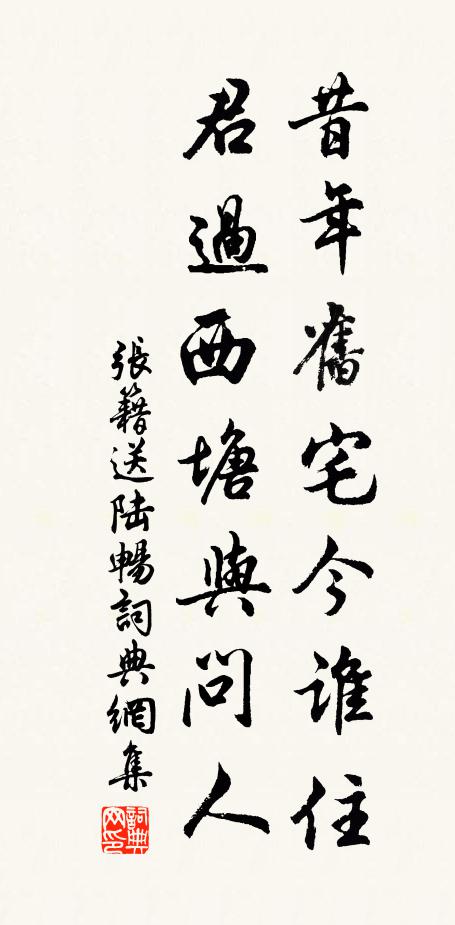 昔年舊宅今誰住
君過西塘與問人
張籍送陸暢詞典網集
詞典网印